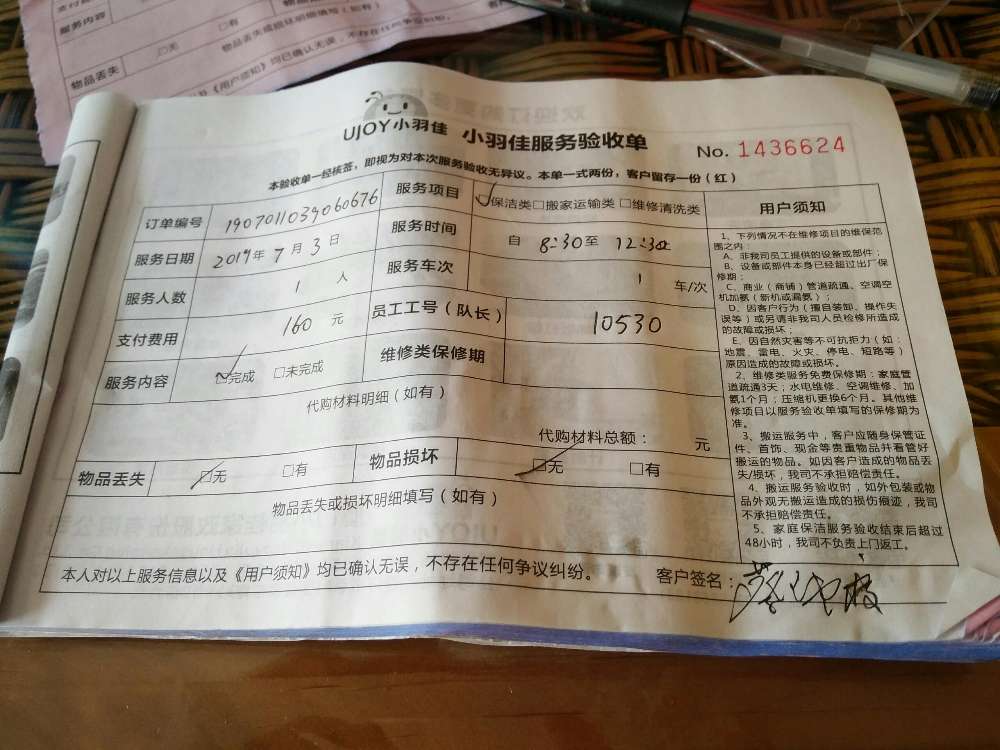 支付
服务内容
□有
物品丢失或损坏明细填写（如有）
□无
物品丢失
《用户须知》均已确认无误，不存在任何争议纠纷。
UJOY小羽佳 小羽佳服务验收单
No. 1436624
本验收单一经核签，即视为对本次服务验收无异议。本单一式两份，客户留存一份（红）
订单编号 1907011039060676 服务项目 □保洁类□搬家运输类 □维修清洗类
服务日期 2019年 7 月 3 日 服务时间 自 8:30至 12:30
服务人数 1 人 服务车次 1 车/次
支付费用 160 元 员工工号（队长） 10530
服务内容 □完成 □未完成 维修类保修期
代购材料明细（如有）
代购材料总额： 元
物品丢失 □无 □有 物品损坏 □无 □有
物品丢失或损坏明细填写（如有）
用户须知
1、下列情况不在维修项目的维保范
围之内：
A、非我司员工提供的设备或部件；
B、设备或部件本身已经超过出厂保
修期；
C、商业（商铺）管道疏通、空调空
机加氨（新机或漏氨）；
D、因客户行为（擅自装卸、操作失
误等）或另请非我司人员检修所造成
的故障或损坏；
E、因自然灾害等不可抗拒力（如：
地震、雷电、火灾、停电、短路等）
原因造成的故障或损坏。
2、维修类服务免费保修期：家庭管
道疏通3天；水电维修、空调维修、加
氨1个月；压缩机更换6个月。其他维
修项目以服务验收单填写的保修期为
准。
3、搬运服务中，客户应随身保管证
件、首饰、现金等贵重物品并看管好
搬运的物品。如因客户造成的物品丢
失/损坏，我司不承担赔偿责任。
4、搬运服务验收时，如外包装或物
品外观无搬运造成的损伤痕迹，我司
不承担赔偿责任。
5、家庭保洁服务验收结束后超过
48小时，我司不负责上门返工。
本人对以上服务信息以及《用户须知》均已确认无误，不存在任何争议纠纷。 客户签名：